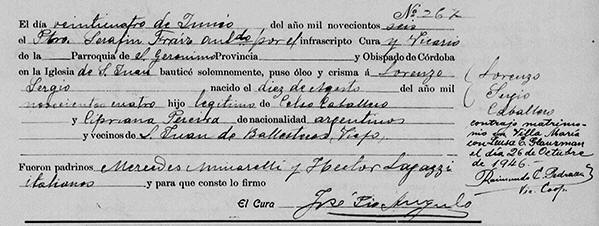 Nº 267
El día veinticuatro de Junio del año mil novecientos seis
el Pbro. Serafin Fraix autdo por el infrascripto Cura y Vicario
de la Parroquia de S. Geronimo Provincia y Obispado de Córdoba
en la Iglesia de S. Juan bauticé solemnemente, puso óleo y crisma á Lorenzo
Sergio nacido el diez de Agosto del año mil
novecientos cuatro hijo legitimo de Celso Caballero
y Cipriana Pereira de nacionalidad argentinos
y vecinos de S. Juan de Ballesteros,
Fueron padrinos Mercedes y Hector
italianos y para que conste lo firmo
El Cura José Pio Angulo
Lorenzo
Sergio
Caballero
contrajo matrimo-
nio en Villa María
con Luisa C. Glauzman
el día 26 de Octubre
de 1946.
Raimundo C.
Vic. Coop.